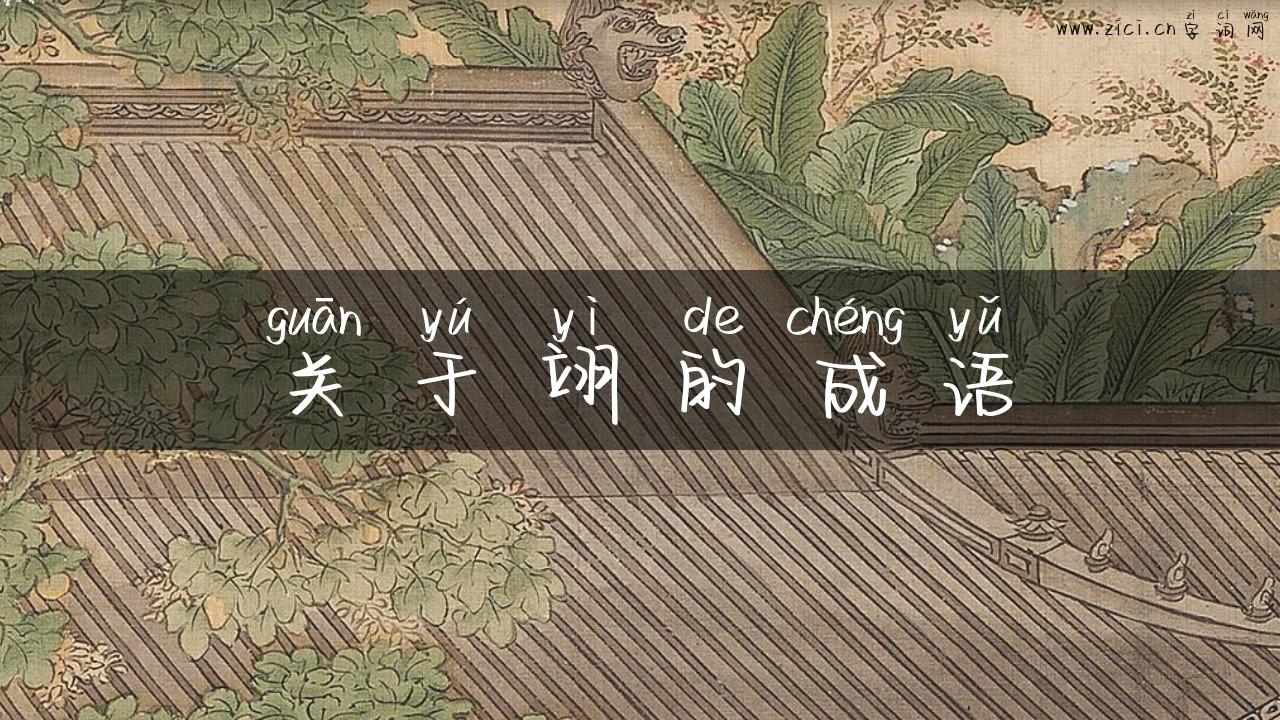 zì cí wǎng
www.zici.cn 字词网
guān yú yì de chéng yǔ
关于翊的成语